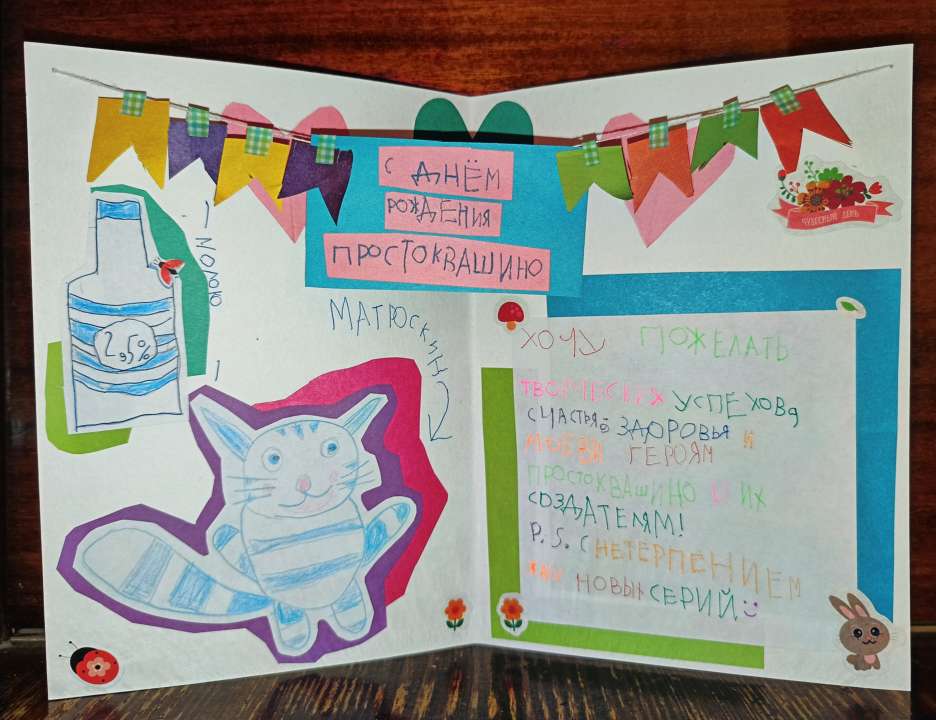 С ДНЁМ
РОЖДЕНИЯ
ПРОСТОКВАШИНО
ЧУДЕСНЫЙ ДЕНЬ
2,5%
МАТРОСКИН
ХОЧУ ПОЖЕЛАТЬ
ТВОРЧЕСКИХ УСПЕХОВ,
СЧАСТЬЯ ЗДОРОВЬЯ И
ГЕРОЯМ
ПРОСТОКВАШИНО И ИХ
СОЗДАТЕЛЯМ!
P.S. С НЕТЕРПЕНИЕМ
ЖДУ НОВЫХ СЕРИЙ